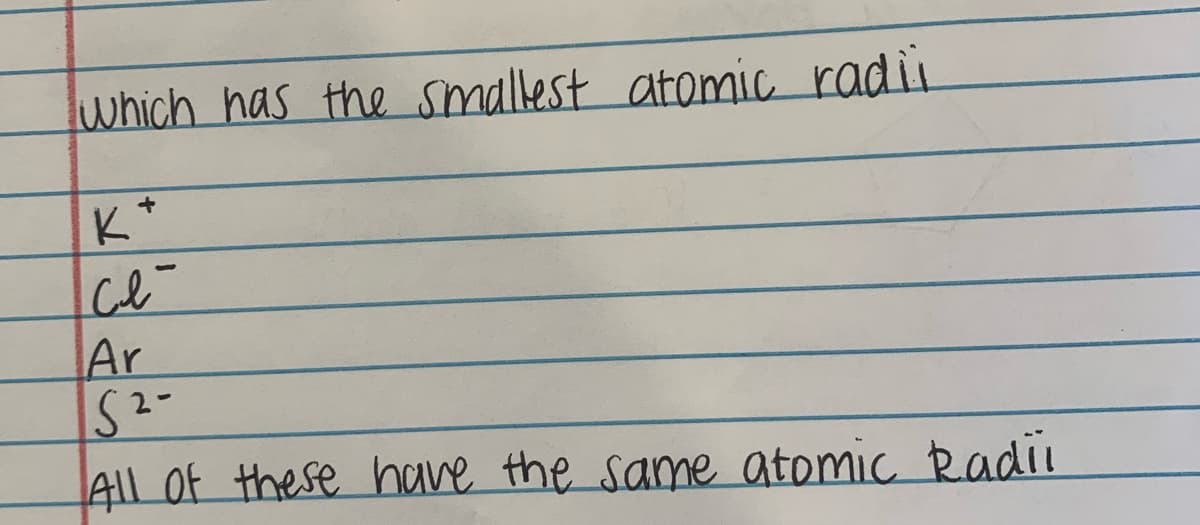 which has the smallest atomic radii
K⁺
Cl⁻
Ar
S²⁻
All of these have the same atomic Radii